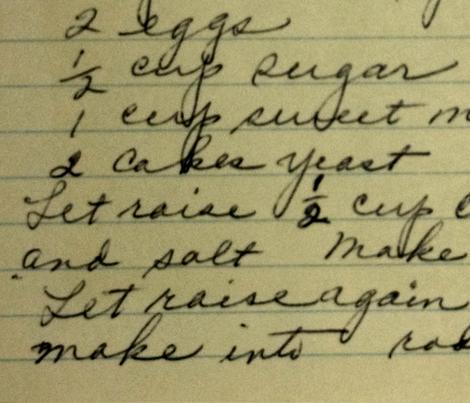 2 eggs
1/2 cup sugar
1 cup sweet
2 cakes yeast
Let raise 1/2 cup
and salt Make
Let raise again
make into